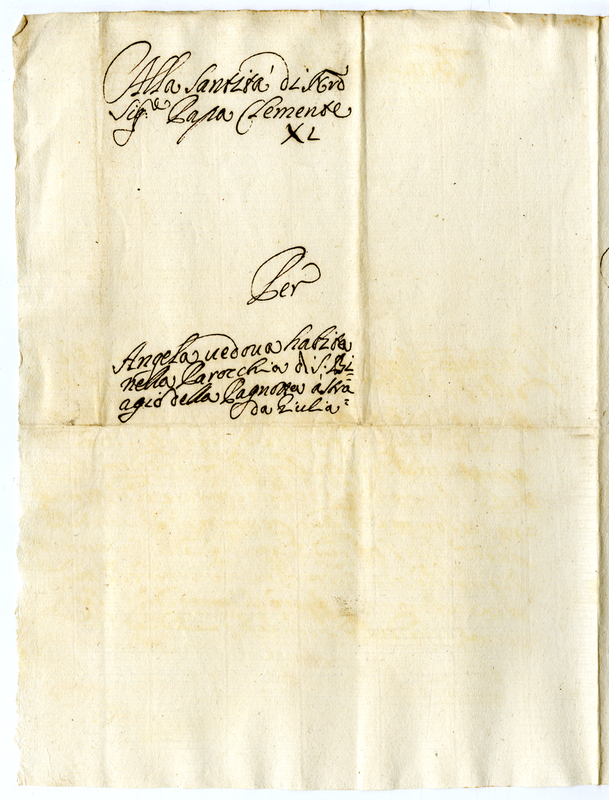 Alla Santità di Nrô
Sig.re Papa Clemente
XI
Per
Angela vedova habita
nella Parocchia di S. Bi-
agio della Pagnotta à stra-
da Giulia